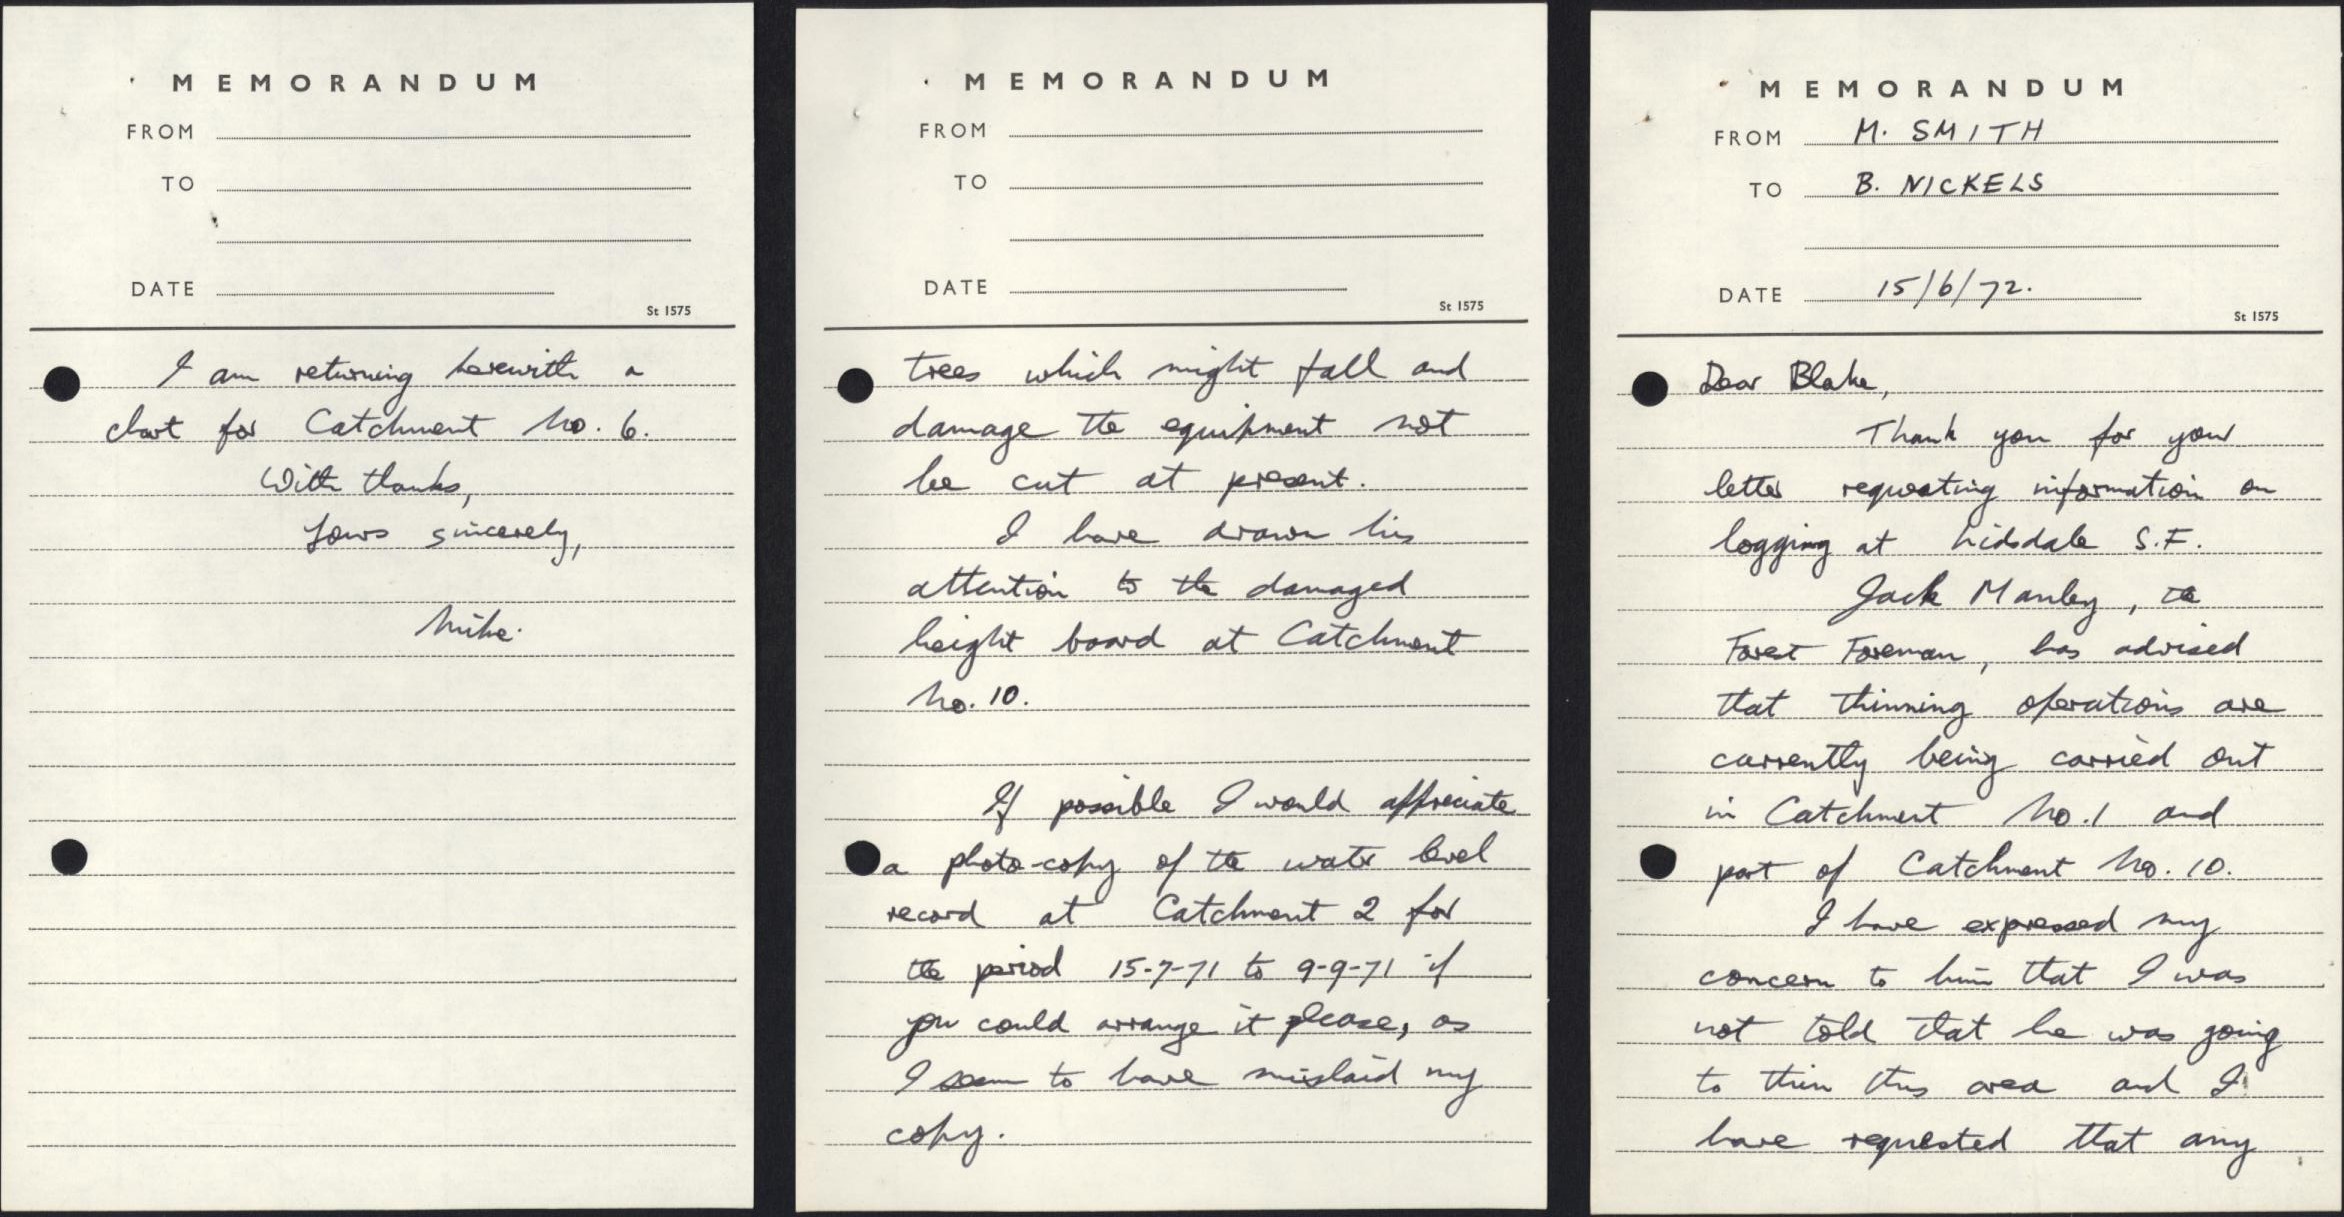 MEMORANDUM
FROM
TO
DATE
St 1575
I am returning herewith a
chart for Catchment No. 6.
With thanks,
Yours sincerely,
Mike.
MEMORANDUM
FROM
TO
DATE
St 1575
trees which might fall and
damage the equipment not
be cut at present.
I have drawn his
attention to the damaged
height board at Catchment
No. 10.
If possible I would appreciate
a photo-copy of the water level
record at Catchment 2 for
the period 15-7-71 to 9-9-71 if
you could arrange it please, as
I seem to have mislaid my
copy.
MEMORANDUM
FROM M. SMITH
TO B. NICKELS
DATE 15/6/72.
St 1575
Dear Blake,
Thank you for your
letter requesting information on
logging at Lidsdale S.F.
Jack Manley, the
Forest Foreman, has advised
that thinning operations are
currently being carried out
in Catchment No. 1 and
part of Catchment No. 10.
I have expressed my
concern to him that I was
not told that he was going
to thin this area and I
have requested that any